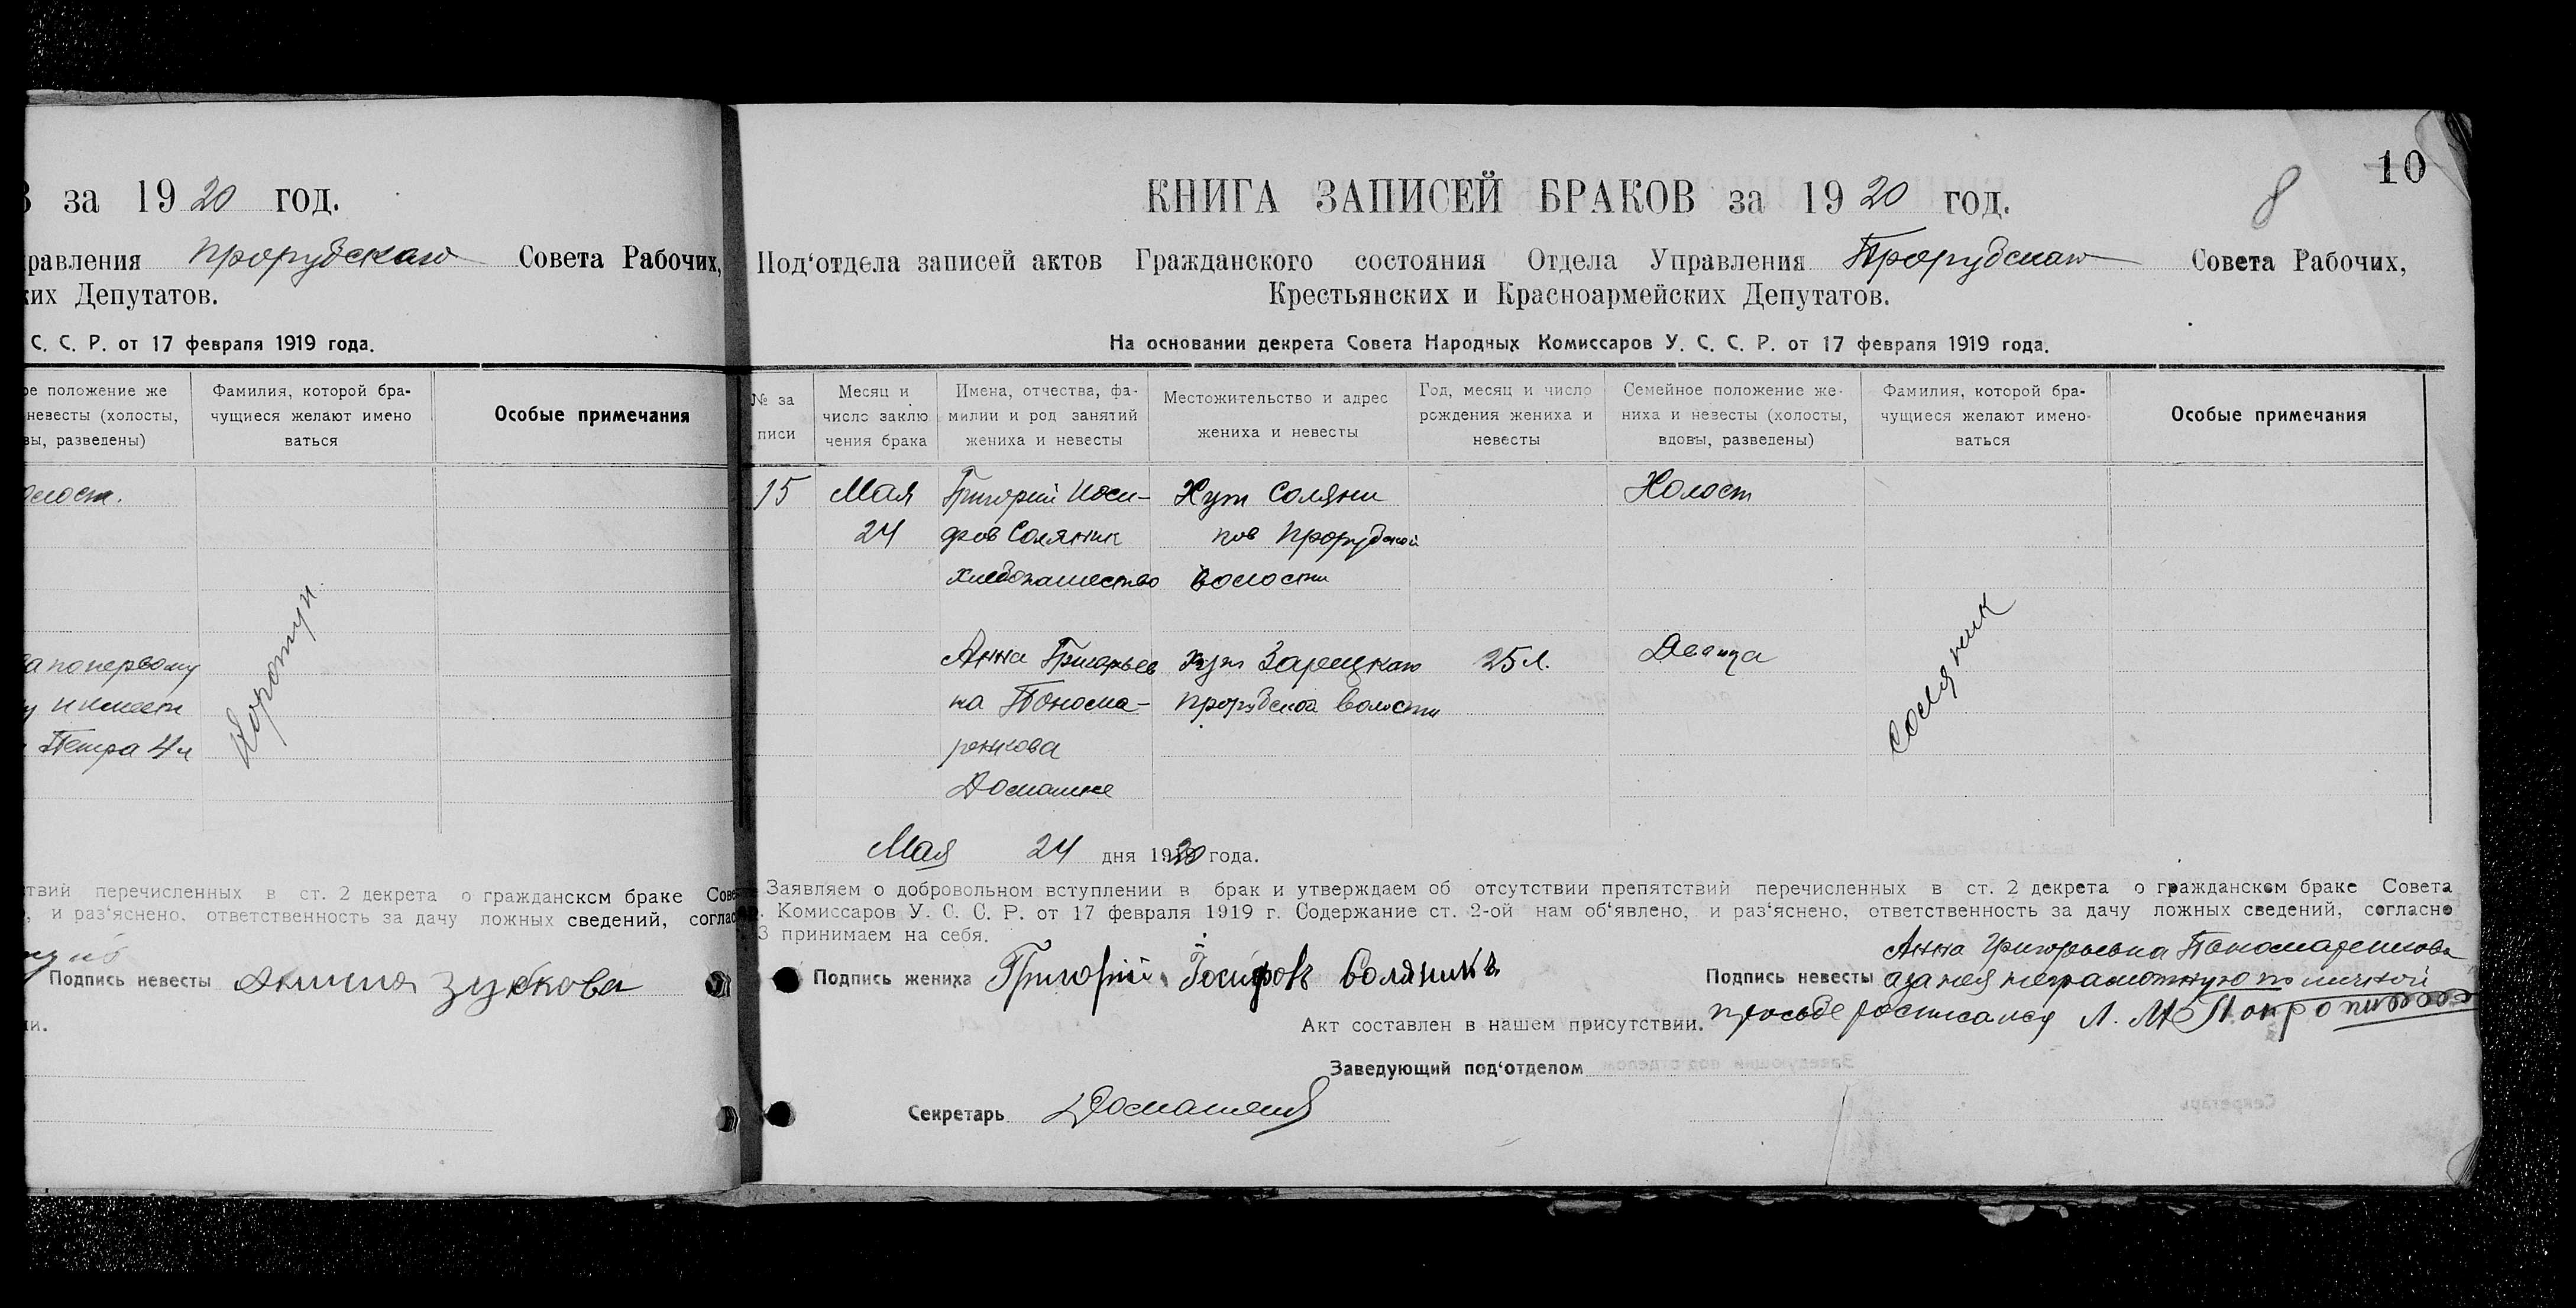 за 1920 год.
равления Прорубскаго Совета Рабочих,
ких Депутатов.
С. С. Р. от 17 февраля 1919 года.
ое положение же
невесты (холосты,
вы, разведены)
Фамилия, которой бра-
чущиеся желают имено
ваться
Особые примечания
олост.
а по первому
Петра 4 л
Коротун
ствий перечисленных в ст. 2 декрета о гражданском браке Сове
, и раз'яснено, ответственность за дачу ложных сведений, соглас
Подпись невесты Зубкова
ии.
10
8
КНИГА ЗАПИСЕЙ БРАКОВ за 1920 год.
Под'отдела записей актов Гражданского состояния Отдела Управления Прорубскаго Совета Рабочих,
Крестьянских и Красноармейских Депутатов.
На основании декрета Совета Народных Комиссаров У. С. С. Р. от 17 февраля 1919 года.
№ за
писи
Месяц и
число заклю
чения брака
Имена, отчества, фа-
милии и род занятий
жениха и невесты
Местожительство и адрес
жениха и невесты
Год, месяц и число
рождения жениха и
невесты
Семейное положение же-
ниха и невесты (холосты,
вдовы, разведены)
Фамилия, которой бра-
чущиеся желают имено-
ваться
Особые примечания
15
Мая
24
Григорий Иоси-
фов Соляник
хлебопашество
Хут Соляни
ков Прорубской
волости
Холост
Анна Григорьев
на Понома-
ренкова
Домашнее
хут Зарецкаго
Прорубской волости
25 л.
Девица
Соляник
Мая 24 дня 1920 года.
Заявляем о добровольном вступлении в брак и утверждаем об отсутствии препятствий перечисленных в ст. 2 декрета о гражданском браке Совета
. Комиссаров У. С. С. Р. от 17 февраля 1919 г. Содержание ст. 2-ой нам об'явлено, и раз'яснено, ответственность за дачу ложных сведений, согласно
3 принимаем на себя.
Подпись жениха Григорій Іосифовъ Соляникъ
Анна Григорьевна Пономаренкова
Подпись невесты а за нея неграмотную по личной
просьбе росписался Л. М.
Акт составлен в нашем присутствии.
Заведующий под'отделом
Секретарь